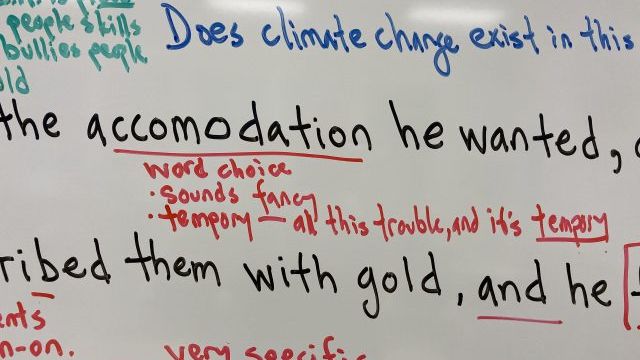 people skills
bullies people
old
Does climate change exist in this
the accomodation he wanted,
word choice
• sounds fancy
• tempory — all this trouble, and it's tempory
ribed them with gold, and he
ents
n-on.
very specific